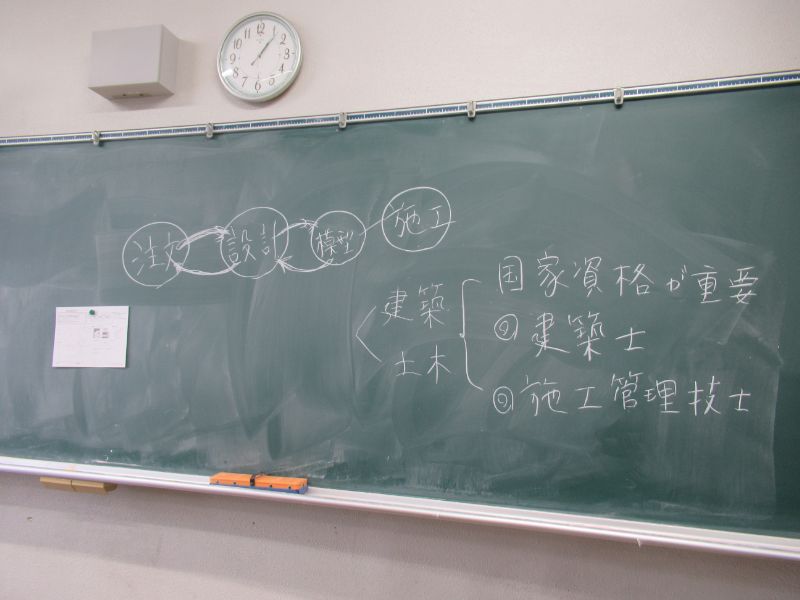 注文 設計 模型 施工
国家資格が重要
建築 ◎建築士
土木
◎施工管理技士
12 1 2 3 4 5 6 7 8 9 10 11